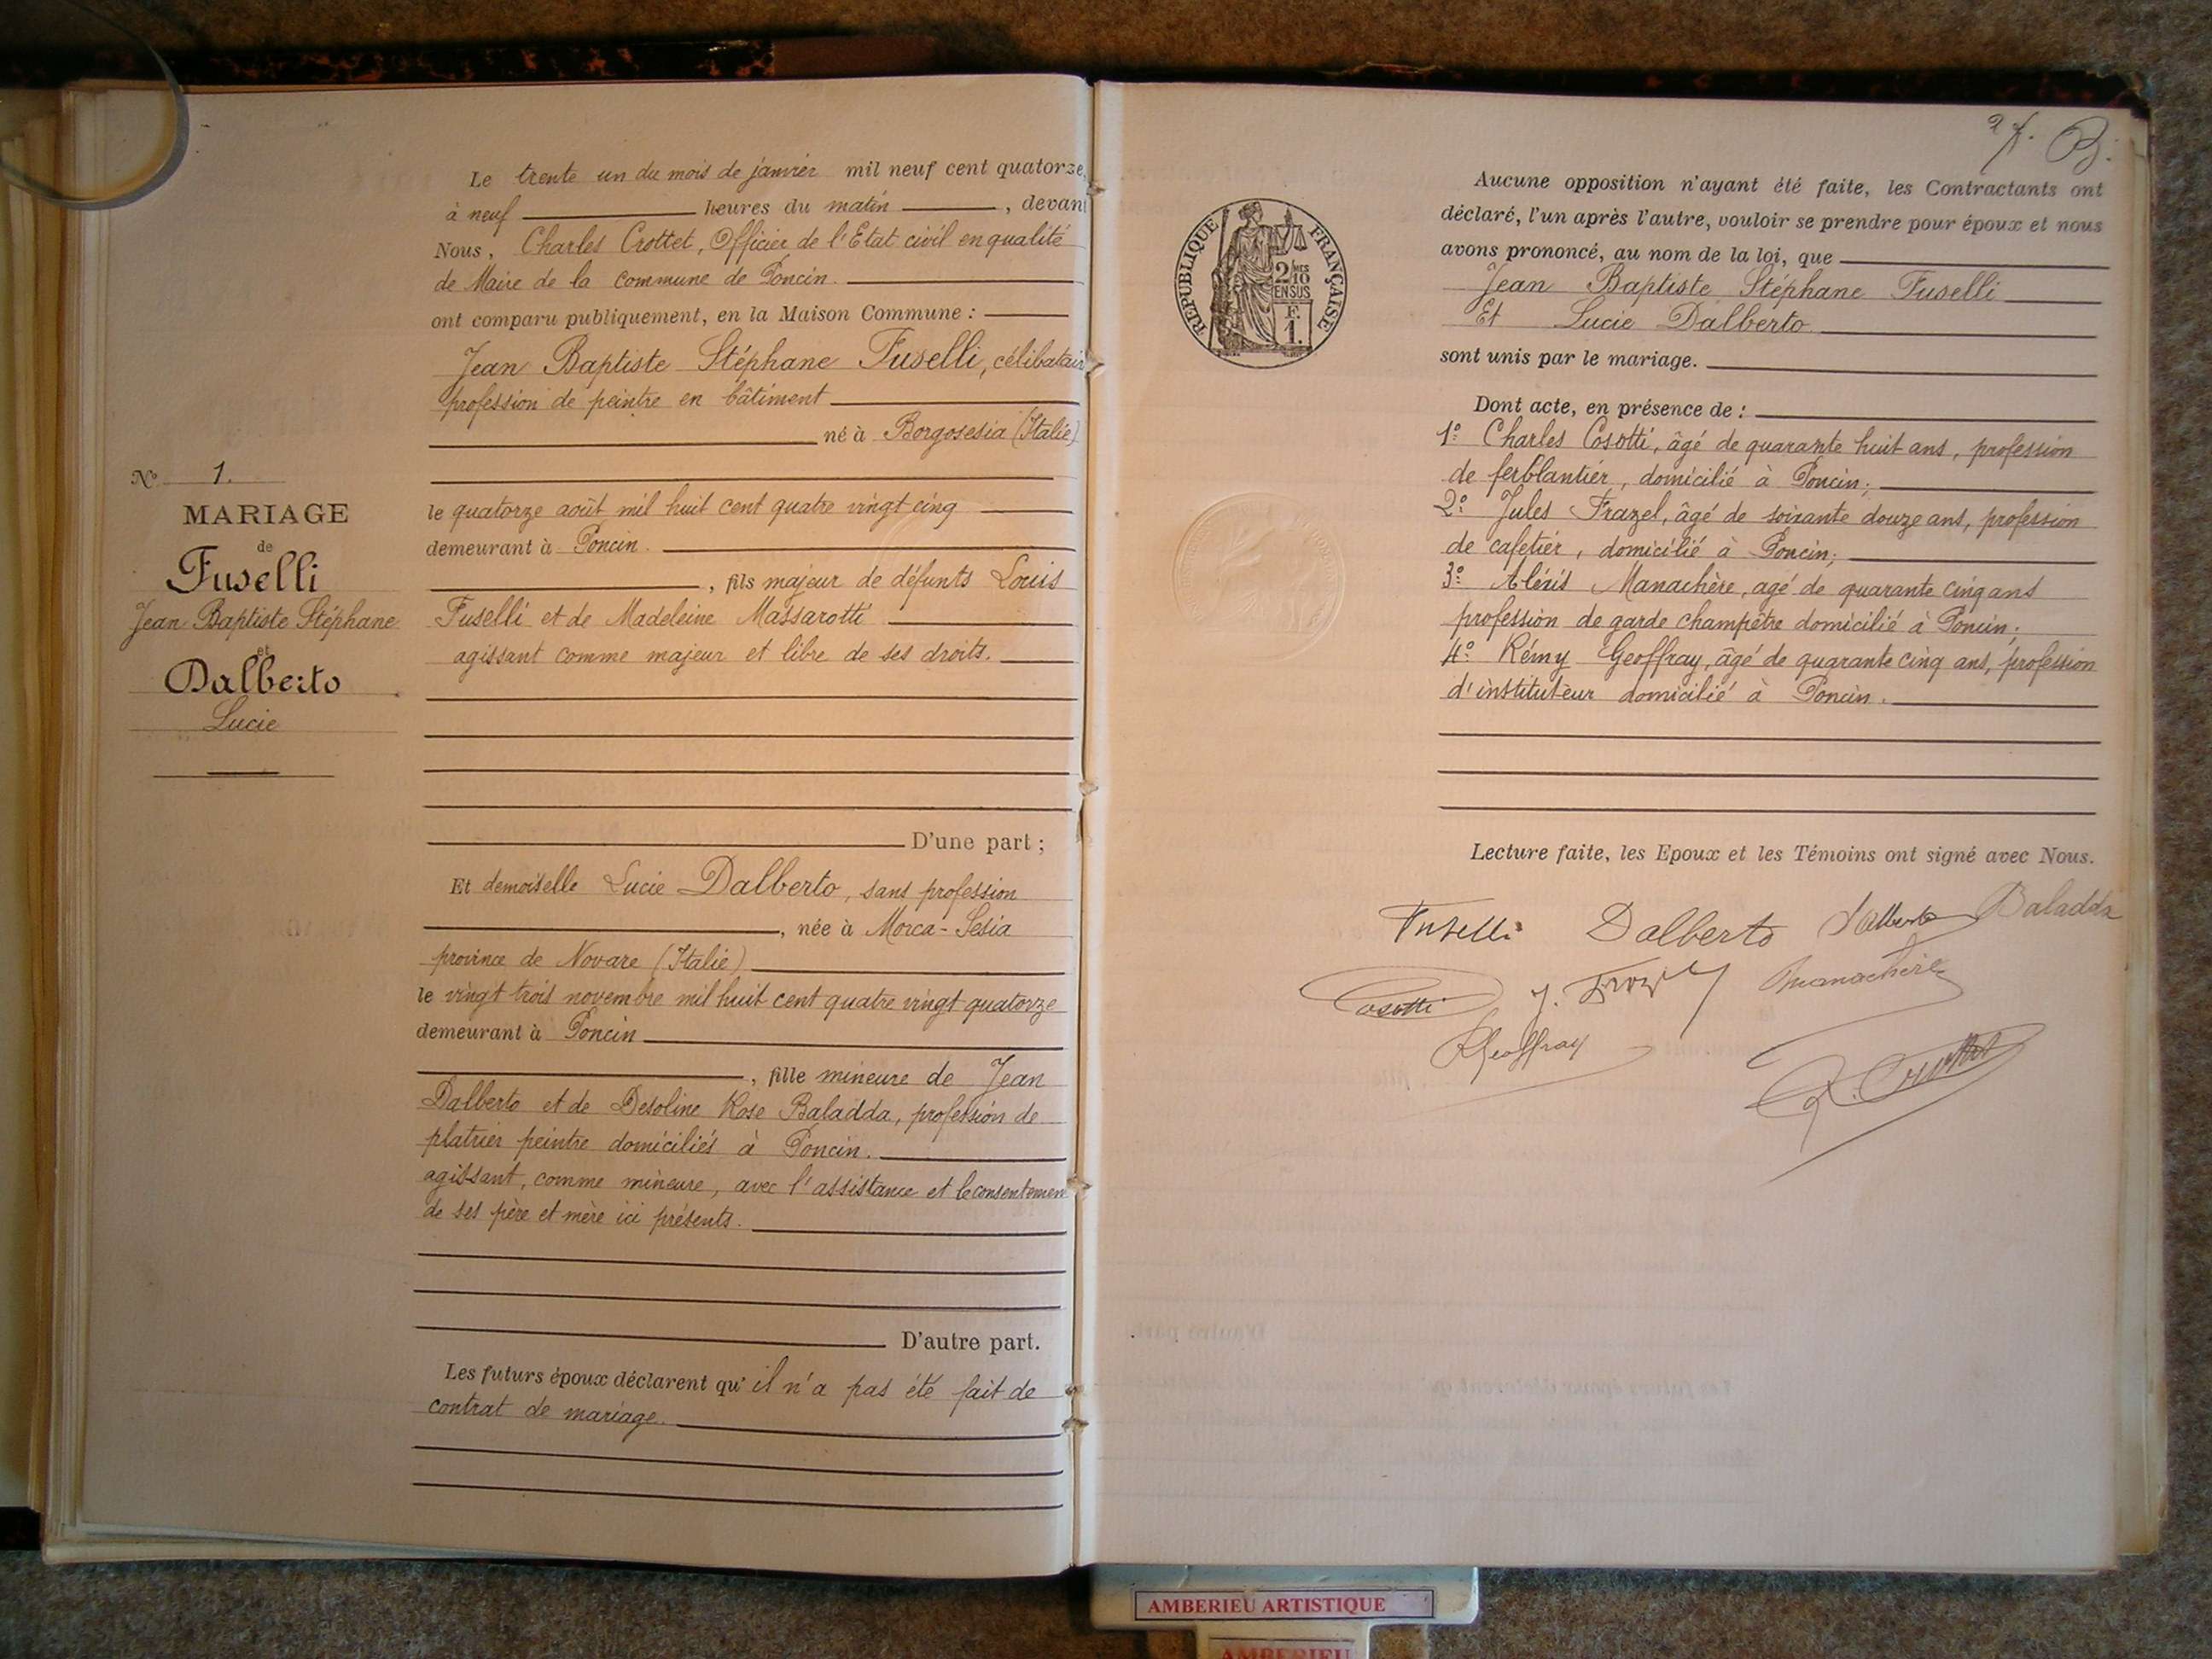 Le trente un du mois de janvier mil neuf cent quatorze,
à neuf heures du matin, devant
Nous, Charles Crottet, Officier de l'Etat civil en qualité
de Maire de la commune de Poncin.
ont comparu publiquement, en la Maison Commune :
Jean Baptiste Stéphane Fuselli, célibatair
profession de peintre en bâtiment
né à Borgosesia (Italie)
le quatorze août mil huit cent quatre vingt cinq
demeurant à Poncin.
, fils majeur de défunts Louis
Fuselli et de Madeleine Massarotti
agissant comme majeur et libre de ses droits.
D'une part ;
Et demoiselle Lucie Dalberto, sans profession
, née à Morca-Sesia
province de Novare (Italie)
le vingt trois novembre mil huit cent quatre vingt quatorze
demeurant à Poncin
, fille mineure de Jean
Dalberto et de Desoline Rose Baladda, profession de
platrier peintre domiciliés à Poncin.
agissant, comme mineure, avec l'assistance et le consentemen
de ses père et mère ici présents.
D'autre part.
Les futurs époux déclarent qu'il n'a pas été fait de
contrat de mariage.
N° 1.
MARIAGE
de
Fuselli
Jean Baptiste Stéphane
et
Dalberto
Lucie
REPUBLIQUE FRANÇAISE
2/10MES
EN SUS
F.
1.
B.
Aucune opposition n'ayant été faite, les Contractants ont
déclaré, l'un après l'autre, vouloir se prendre pour époux et nous
avons prononcé, au nom de la loi, que
Jean Baptiste Stéphane Fuselli
Et Lucie Dalberto
sont unis par le mariage.
Dont acte, en présence de :
1° Charles Cosotti, âgé de quarante huit ans, profession
de ferblantier, domicilié à Poncin;
2° Jules Frazel, âgé de soixante douze ans, profession
de cafetier, domicilié à Poncin;
3° Aléxis Manachère, agé de quarante cinq ans
profession de garde champêtre domicilié à Poncin;
4° Rémy Geoffray, âgé de quarante cinq ans, profession
d'instituteur domicilié à Poncin.
Lecture faite, les Epoux et les Témoins ont signé avec Nous.
Fuselli Dalberto Dalberto Baladda
Cosotti J. Manachère
RGeoffray
Crottet
AMBERIEU ARTISTIQUE
AMBERIEU